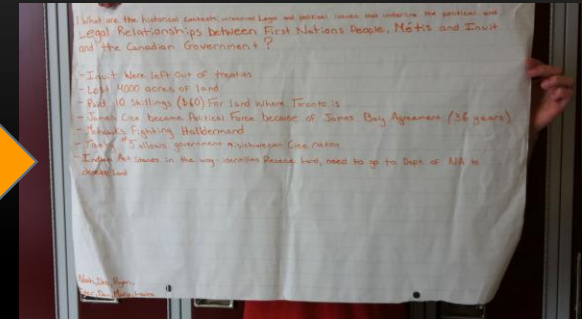 1 What are the historical contexts, Legal and political issues that underline the political and
Legal Relationships between First Nations People, Métis and Inuit
and the Canadian Government?
- Inuit Were left out of treaties
- Lost 4000 acres of land
- Paid 10 Shillings ($60) For land Where Toronto is
- James Cree became Political Force because of James Bay Agreement (36 years)
- Mohawks Fighting Haldermand
- #5 allows government Cree nation
- Indian Act stands in the way Reserve Land, need to go to Dept. of NA to
Land